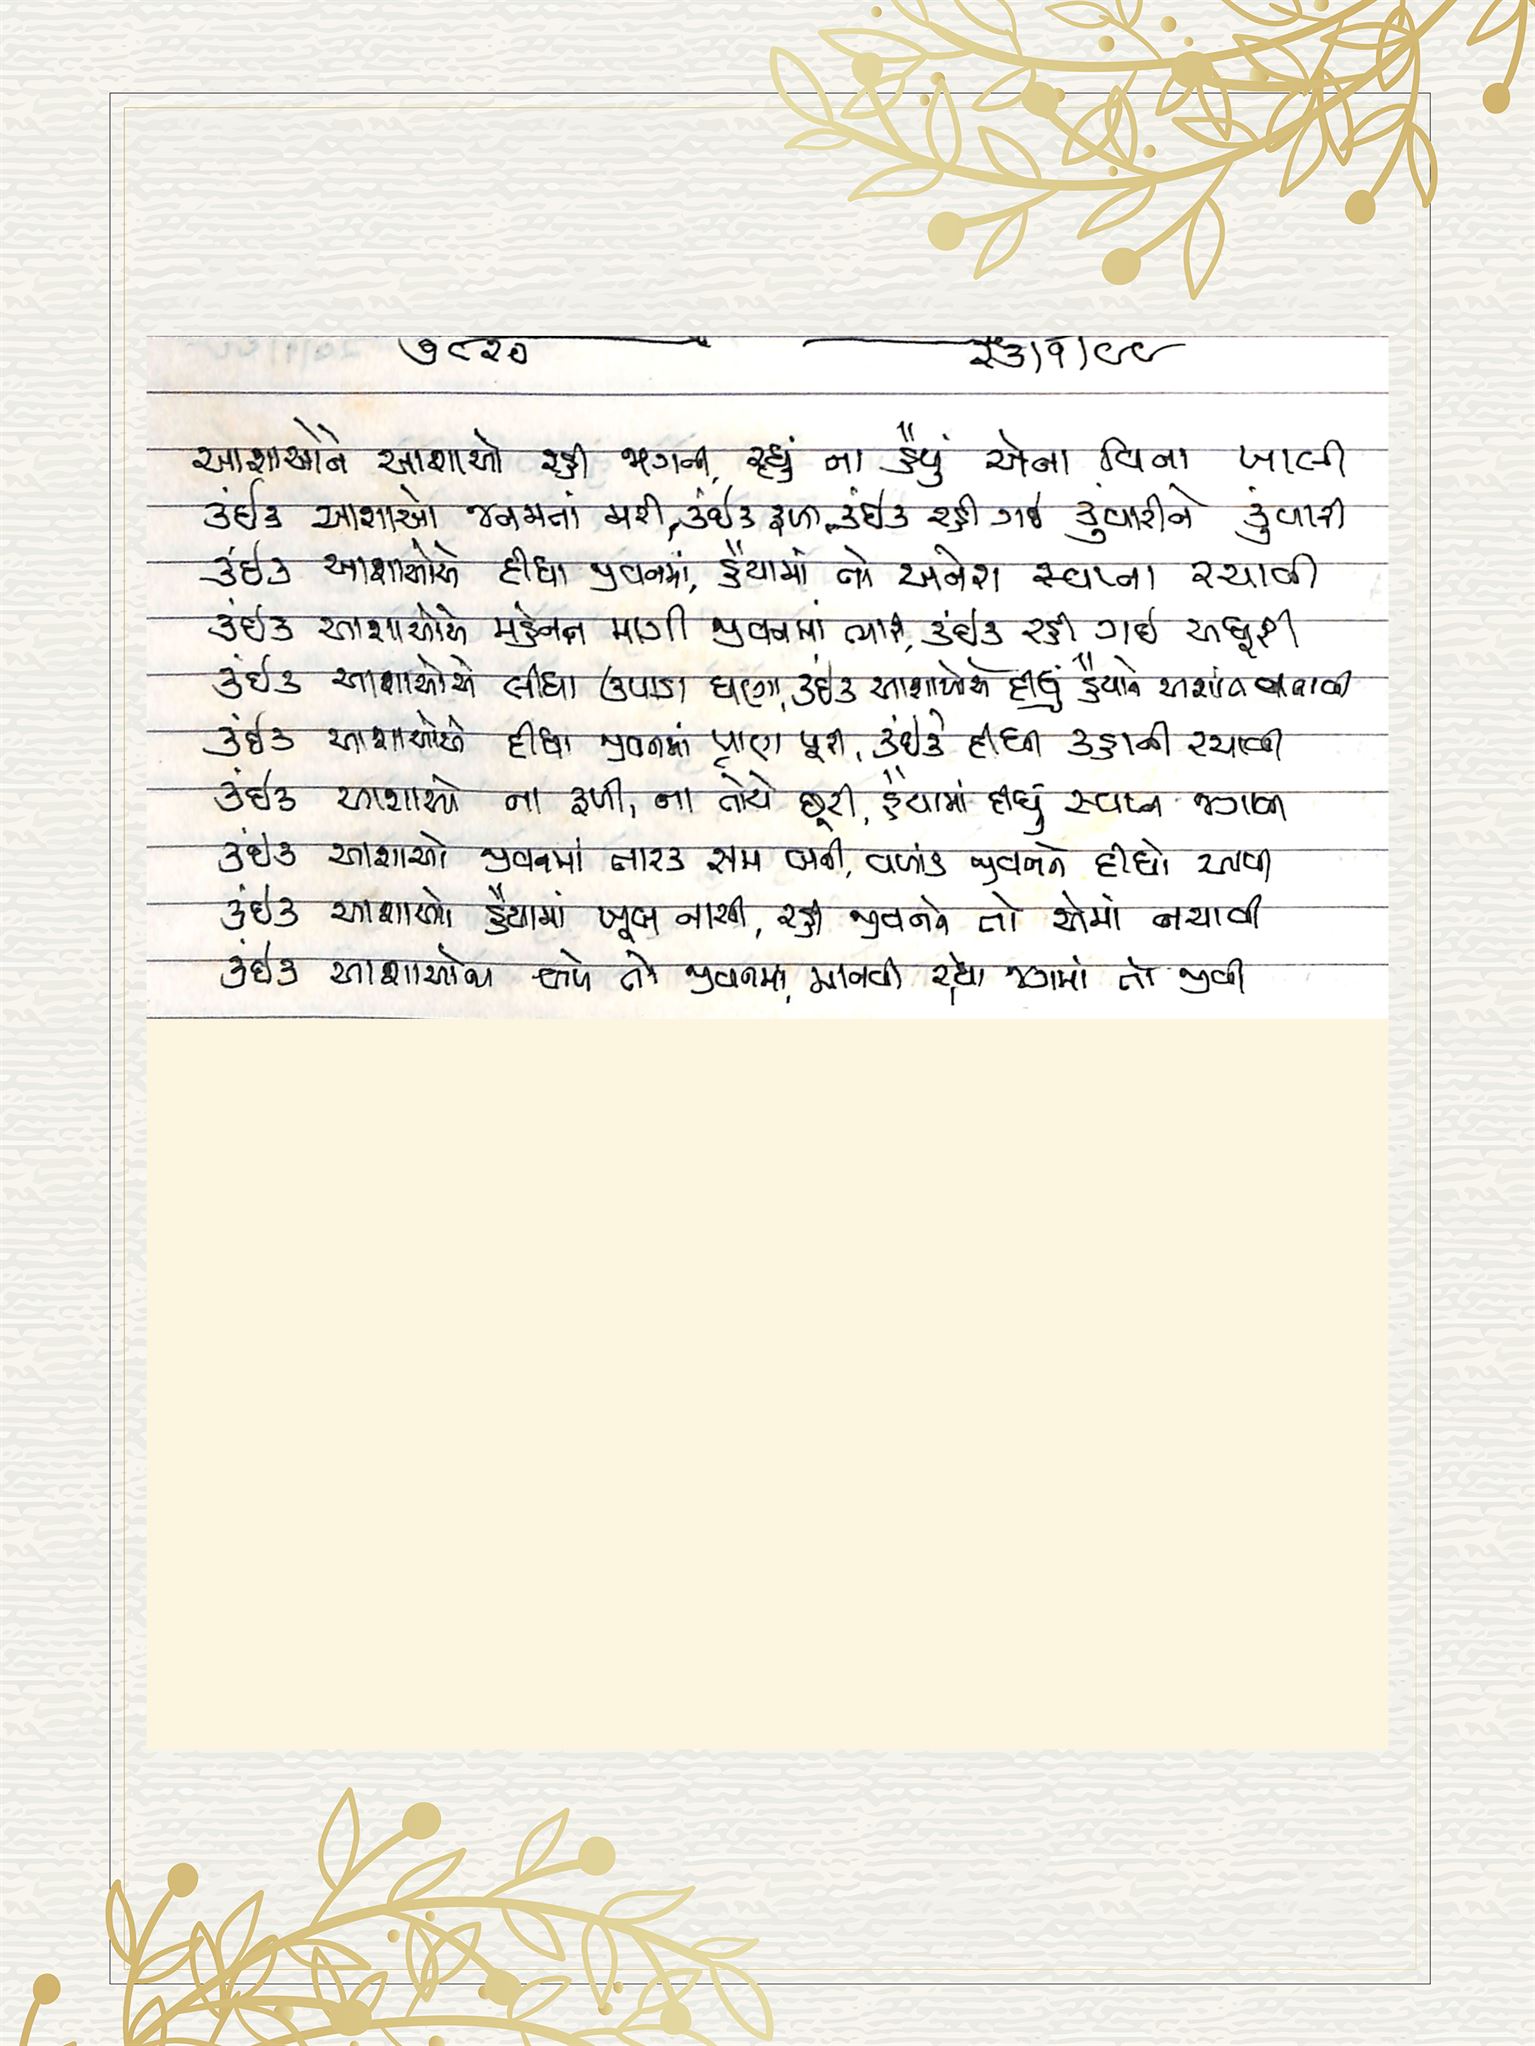 ૭૯૨૦ ૨૩/૧/૯૯
આશાઓને આશાઓ રહી જાગતી, રહ્યું ના હૈયું એના વિના ખાલી
કંઈક આશાઓ જનમતાં મરી, કંઈક ફળી, કંઈક રહી ગઈ કુંવારીને કુંવારી
કંઈક આશાઓએ દીધા જીવનમાં, હૈયામાં તો અનેરા સ્વપ્ના રચાવી
કંઈક આશાઓએ મહેનત માગી જીવનમાં ત્યારે, કંઈક રહી ગઈ અધૂરી
કંઈક આશાઓએ લીધા ઉપાડા ઘણા, કંઈક આશાઓએ દીધું હૈયાને અશાંત બનાવી
કંઈક આશાઓએ દીધા જીવનમાં પ્રાણ પૂરી, કંઈકે દીધી કહાની રચાવી
કંઈક આશાઓ ના ફળી, ના તોયે છૂટી, હૈયામાં દીધું સ્વપ્ન જગાવી
કંઈક આશાઓ જીવનમાં તારક સમ બની, વળાંક જીવનને દીધો આપી
કંઈક આશાઓ હૈયામાં ખૂબ નાચી, રહી જીવનને તો એમાં નચાવી
કંઈક આશાઓના બળે તો જીવનમાં, માનવી રહ્યા જગમાં તો જીવી